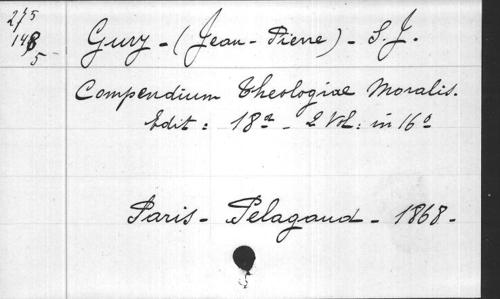 275
148
5
Gury - (Jean - Pierre) - S. J.
Compendium Theologiae Moralis.
Edit : 18ª - 2 Vol : in 16º
Paris - Pelagaud - 1868 -